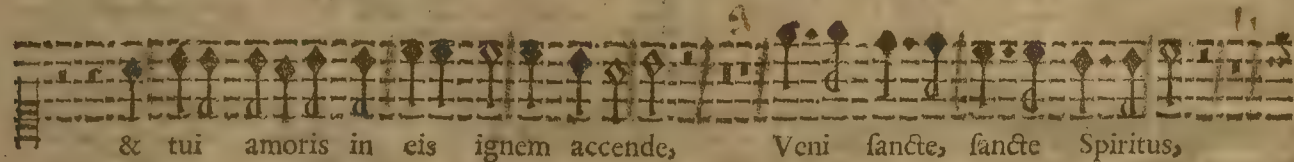 & tui amoris in eis ignem accende, Veni ſancte, ſancte Spiritus,